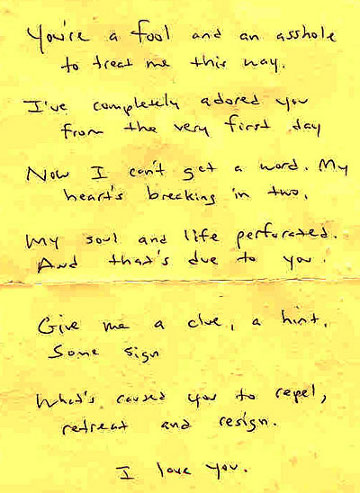 You're a fool and an asshole
to treat me this way.
I've completely adored you
from the very first day
Now I can't get a word. My
heart's breaking in two.
My soul and life perforated.
And that's due to you.
Give me a clue, a hint.
Some sign
What's caused you to repel,
retreat and resign.
I love you.